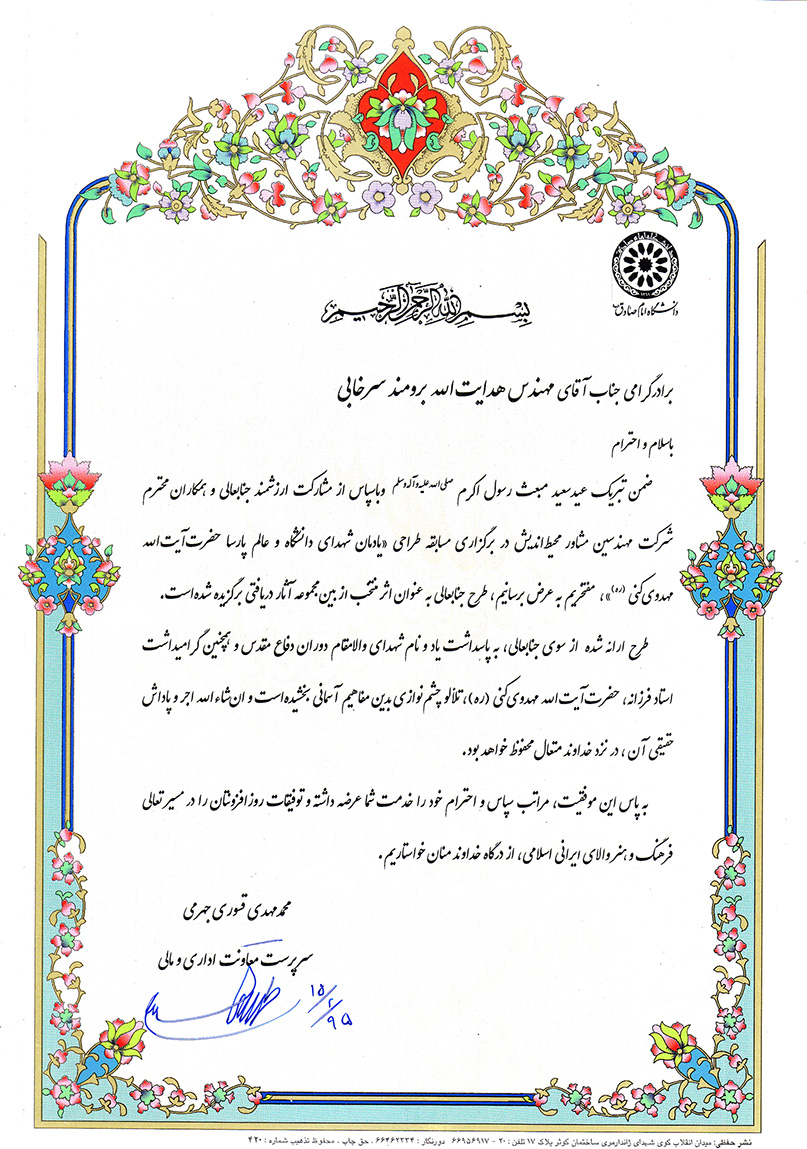 دانشگاه امام صادق
بسم الله الرحمن الرحیم
برادر گرامی جناب آقای مهندس هدایت الله برومند سرخابی
باسلام و احترام
ضمن تبریک عید سعید مبعث رسول اکرم صلی‌الله‌علیه‌وآله‌وسلم وباسپاس از مشارکت ارزشمند جنابعالی و همکاران محترم
شرکت مهندسین مشاور محیط‌اندیش در برگزاری مسابقه طراحی «یادمان شهدای دانشگاه و عالم پارسا حضرت آیت‌الله
مهدوی‌کنی (ره)»، مفتخریم به عرض برسانیم، طرح جنابعالی به عنوان اثر منتخب از بین مجموعه آثار دریافتی برگزیده شده‌است.
طرح ارائه شده از سوی جنابعالی، به پاسداشت یاد و نام شهدای والامقام دوران دفاع مقدس و همچنین گرامیداشت
استاد فرزانه، حضرت آیت‌الله مهدوی‌کنی (ره)، تلألو چشم‌نوازی بدین مفاهیم آسمانی بخشیده‌است و ان‌شاءالله اجر و پاداش
حقیقی آن، در نزد خداوند متعال محفوظ خواهد بود.
به پاس این موفقیت، مراتب سپاس و احترام خود را خدمت شما عرضه داشته و توفیقات روزافزونتان را در مسیر تعالی
فرهنگ و هنر والای ایرانی اسلامی، از درگاه خداوند منان خواستاریم.
محمدمهدی قسوری جهرمی
سرپرست معاونت اداری و مالی
۹۵/۲/۱۵
نشر حفظی: میدان انقلاب کوی شهدای ژاندارمری ساختمان کوثر پلاک ۱۷ تلفن: ۲۰ - ۶۶۹۵۶۹۱۷ دورنگار: ۶۶۴۶۲۲۳۴ ، حق چاپ ، محفوظ تذهیب شماره: ۴۲۰